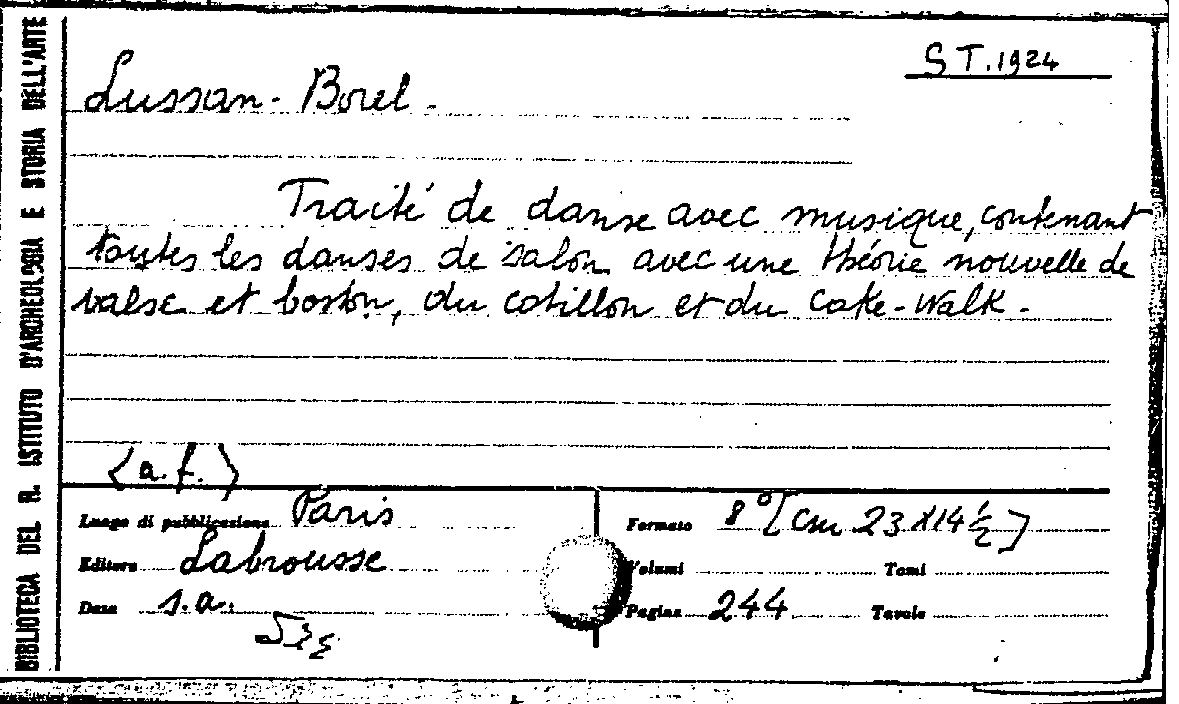 BIBLIOTECA DEL R. ISTITUTO D'ARCHEOLOGIA E STORIA DELL'ARTE
ST.1924
Lussan-Borel.
Traité de danse avec musique, contenant
toutes les danses de salon avec une théorie nouvelle de
valse et boston, du cotillon et du Cake-Walk.
(a.f.)
Luogo di pubblicazione Paris
Formato 8° [cm 23 x 14 ½]
Editore Labrousse
Volumi Tomi
Data s.a.
Pagine 244 Tavole